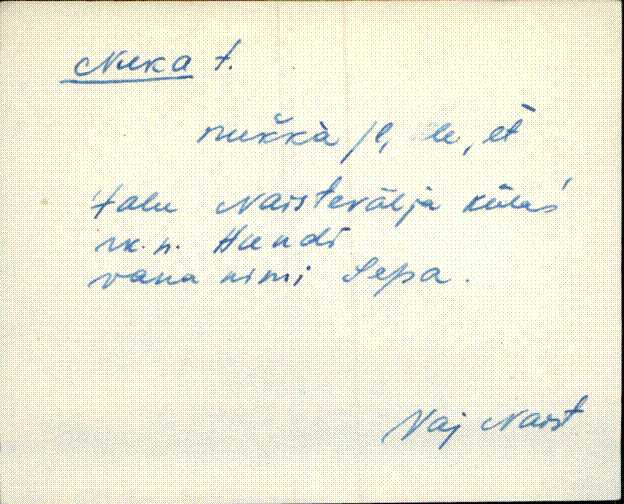 Nuka t.
nukkà /l, le, ēt
talu Naistevälja külas
rk. n. Hundi
vana nimi Sepa.
Vaj Naist